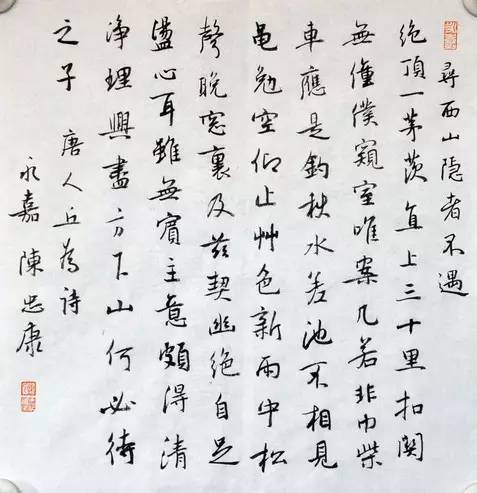 尋西山隐者不遇
绝頂一茅茨直上三十里扣関
無僮僕窺室唯案几若非巾柴
車應是釣秋水差池不相見
黽勉空仰止艸色新雨中松
聲晚窓裏及兹契幽绝自足
盪心耳雖無賓主意頗得清
净理興盡方下山何必待
之子 唐人丘為詩
永嘉陳忠康